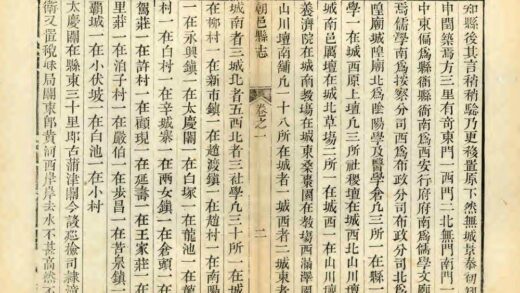 知縣後其言稍稍驗乃更移置原下然無城景泰初知
申問築焉方三里有奇東門一西門一北無門南門一
中東偏爲縣衙縣衙南爲西安行府府南爲儒學文廟
焉儒學南爲按察分司西爲布政分司布政分司北爲
隍廟城隍廟北爲陰陽學及醫學倉凡三所一在縣一
學一在城西原上壇凡三所社稷壇在城西北山川壇
城南邑厲壇在城北草塲二所一在城內一在山川壇
養濟院在城南教塲在城東桑棗園在教塲西漏澤園
山川壇南舖凡一十八所在城者一城西者二城東者
朝邑縣志
卷之一
二
城南者三城北者五西北者三社學凡三十所一在城
在柳村一在新市鎮一在趙渡鎮一在趙村一在南陽
一在永興鎮一在太慶關一在白塚一在龍池一在
村一在白村一在辛城寨一在兩女鎮一在倉頭一在
駕莊一在許村一在顧現一在延壽一在王家莊一在
里莊一在泊子村一在嚴伯一在步昌一在苦泉鎮一
覇城一在小伏坡一在白池一在小村
太慶關在縣東三十里即古蒲津關今設巡檢司隸蒲
衛又置稅課局關東郎黃河西岸岸去水不甚高然不